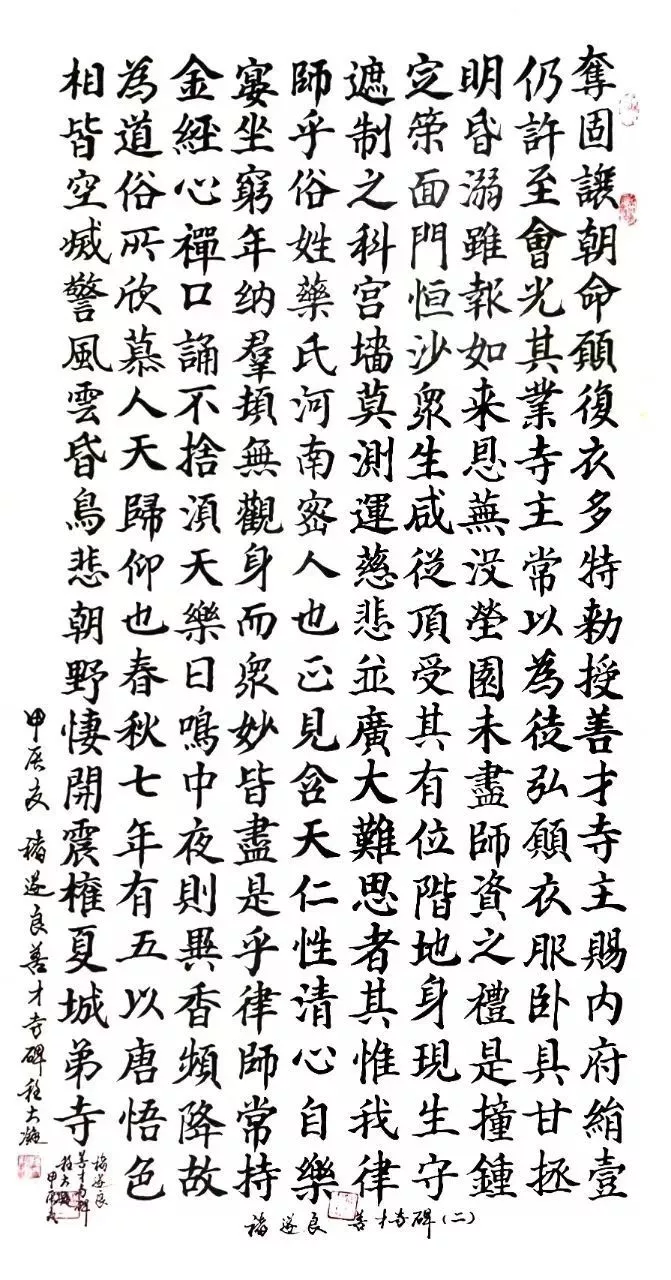 奪固讓朝命願復衣多特勅授善才寺主賜内府絹壹
仍許至會光其業寺主常以為徒弘願衣服卧具甘拯
明昏溺雖報如来恩蕪没塋園未盡師資之禮是撞鍾
定榮面門恒沙衆生咸從頂受其有位階地身現生守
遮制之科宫墻莫測運慈悲並廣大難思者其惟我律
師乎俗姓藥氏河南密人也正見含天仁性清心自樂
宴坐窮年纳羣無觀身而衆妙皆盡是乎律師常持
金經心禪口誦不捨湏天樂日鳴中夜則異香頻降故
為道俗所欣慕人天歸仰也春秋七年有五以唐悟色
相皆空滅警風雲昏鳥悲朝野悽開震權夏城弟寺
甲辰夏 褚遂良善才寺碑程大
褚遂良
善才寺碑
程大
甲辰夏
褚遂良 善才寺碑(二)